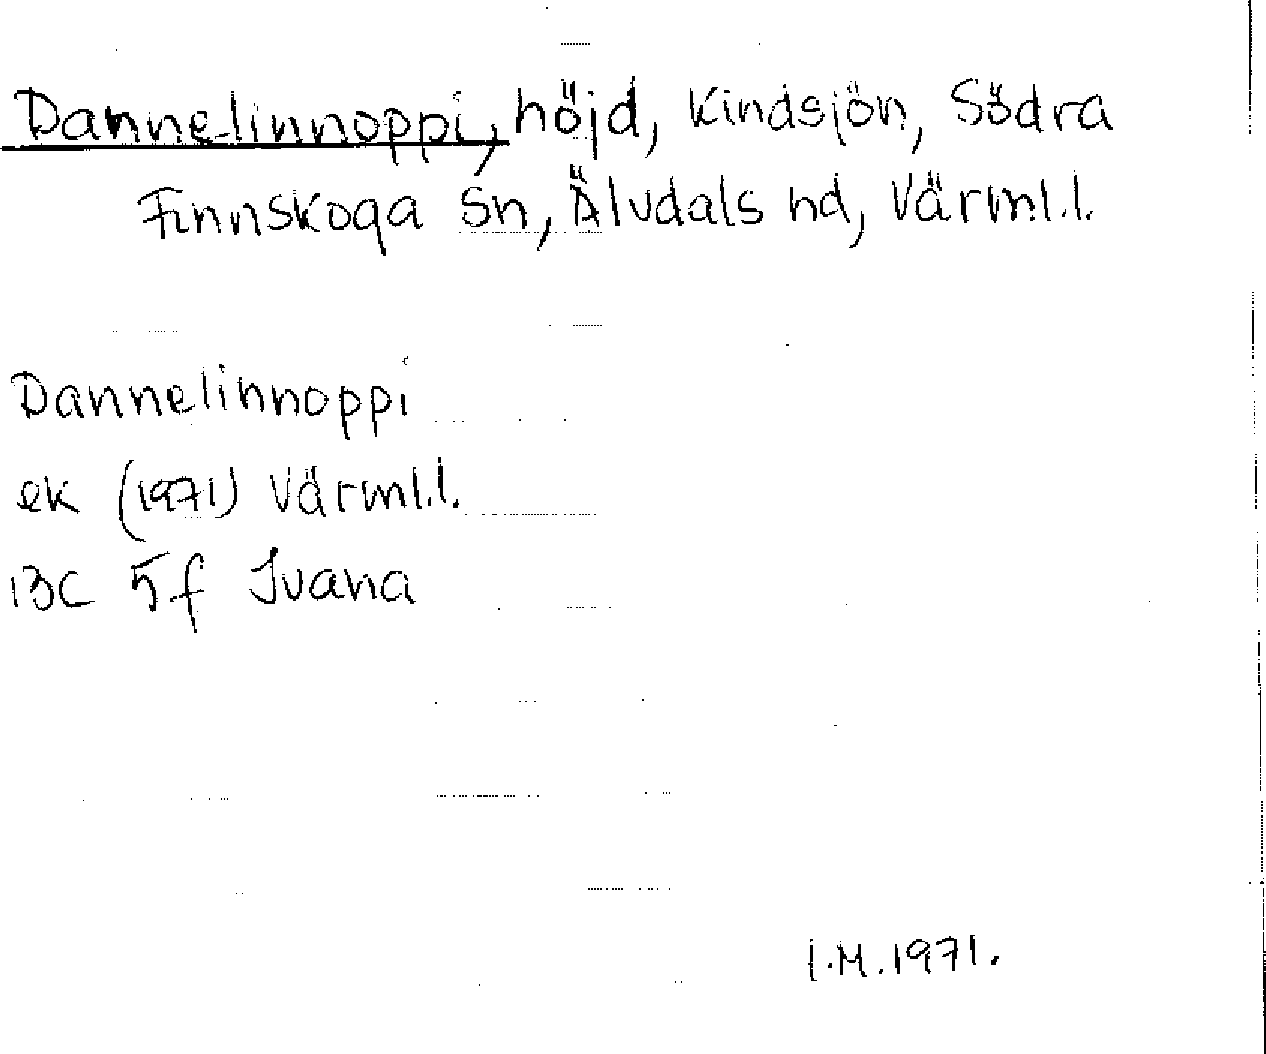 Dannelinnoppi, höjd, Kindsjön, Södra
Finnskoga sn, Älvdals hd, Värml.l.
Dannelinnoppi
ek (1971) Värml.l.
13C 5f Ivana
I.M.1971.